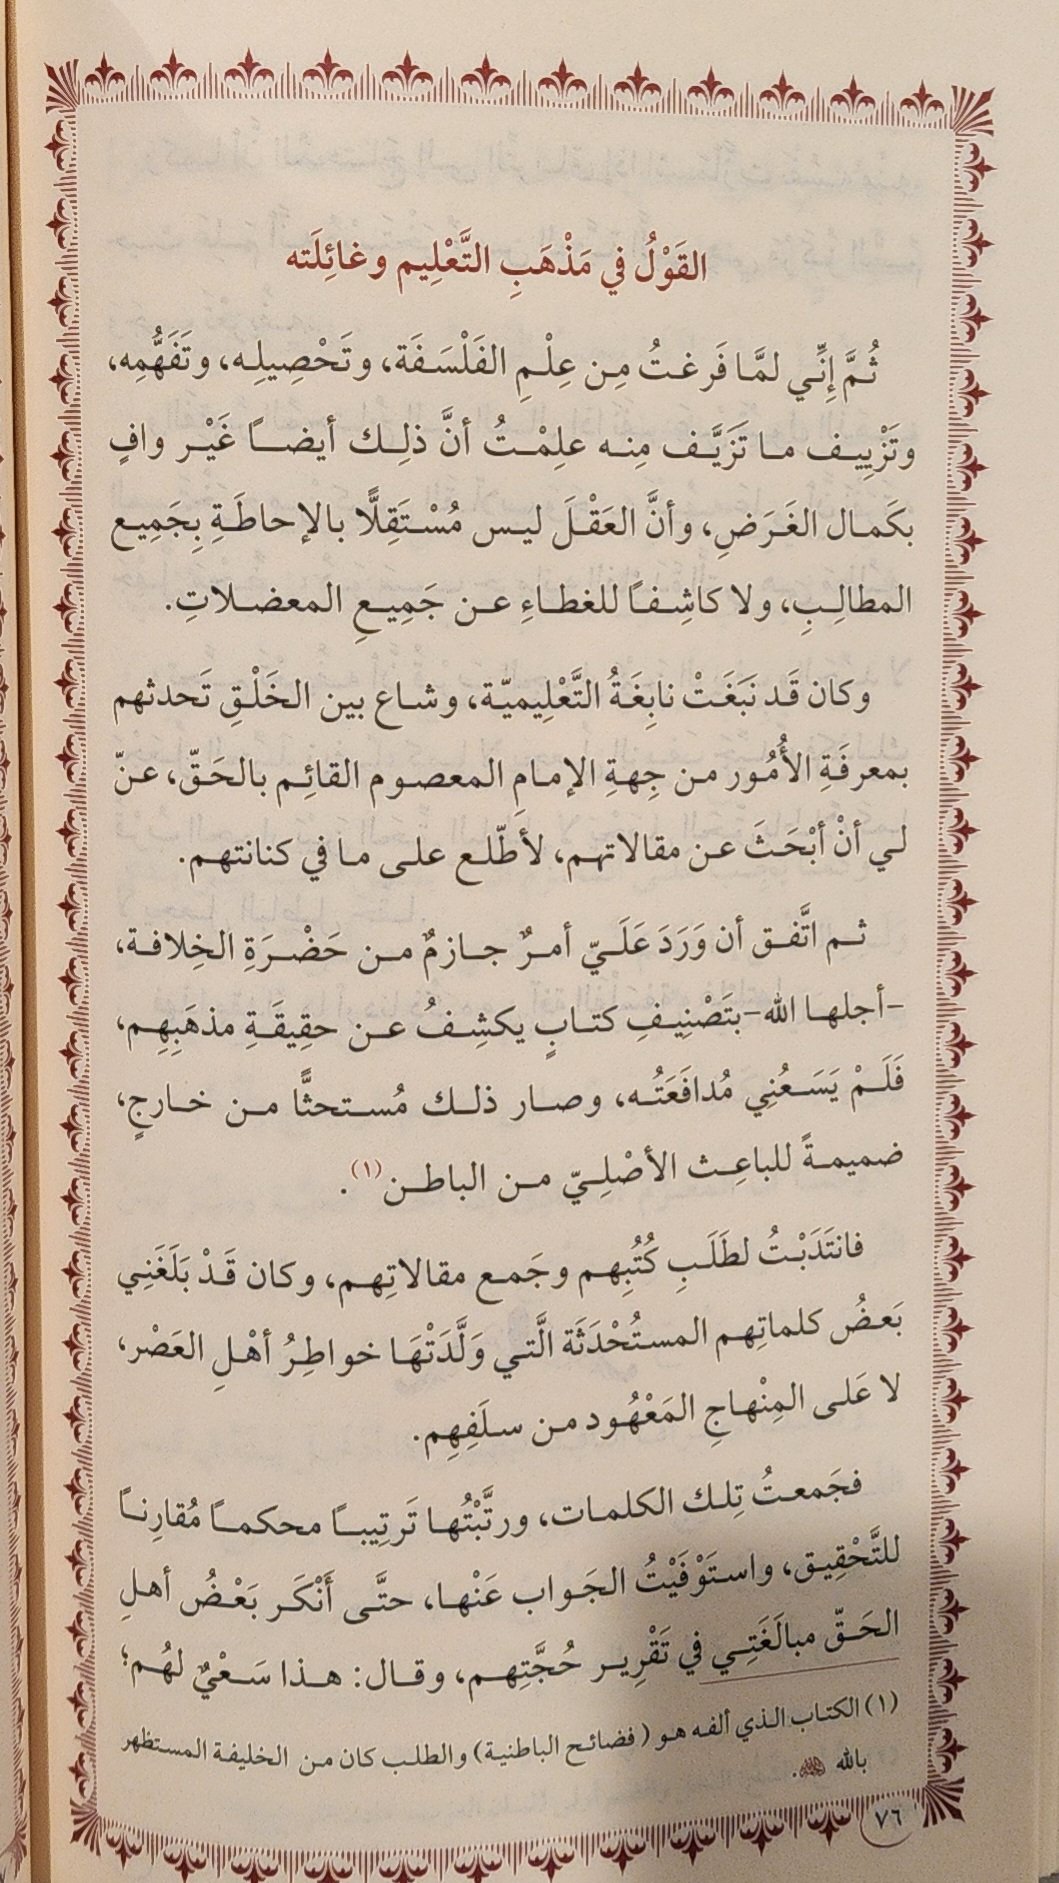 القَوْلُ في مَذْهَبِ التَّعْلِيم وغائِلَته
ثُمَّ إنِّي لمَّا فَرغتُ مِن عِلْمِ الفَلْسَفَة، وتَحْصِيلِه، وتَفَهُّمِه،
وتَزْيِيف ما تَزَيَّف مِنه علِمْتُ أنَّ ذلِك أيضاً غَيْر وافٍ
بكَمال الغَرَضِ، وأنَّ العَقْلَ ليس مُسْتَقِلًّا بالإحاطَةِ بِجَمِيع
المطالِبِ، ولا كاشِفاً للغطاءِ عن جَمِيعِ المعضلاتِ.
وكان قَد نبَغَتْ نابِغَةُ التَّعْلِيميّة، وشاع بين الخَلْقِ تَحدثهم
بمعرفَةِ الأُمُور من جِهةِ الإمامِ المعصوم القائِم بالحَقّ، عنّ
لي أنْ أبْحَثَ عن مقالاتهم، لأطّلع على ما في كنانتهم.
ثم اتَّفق أن وَرَدَ عَلَيّ أمرٌ جازمٌ من حَضْرَةِ الخِلافة،
-أجلها الله-بتَصْنِيفِ كتابٍ يكشِفُ عن حقِيقَةِ مذهَبِهِم،
فَلَمْ يَسَعُنِي مُدافَعَتُه، وصار ذلك مُستحثًّا من خارجٍ،
ضميمةً للباعِث الأصْلِيّ من الباطن(١).
فانتَدَبْتُ لطَلَبِ كُتُبِهم وجَمع مقالاتِهم، وكان قَدْ بَلَغَنِي
بَعضُ كلماتِهم المستُحْدَثَة الَّتي وَلَّدَتْهَا خواطِرُ أهْلِ العَصْر،
لا عَلى المِنْهاجِ المَعْهُود من سلَفِهِم.
فجَمعتُ تِلك الكلمات، ورتَّبْتُها تَرتِيباً محكماً مُقارِناً
للتَّحْقِيق، واستَوْفَيْتُ الجَواب عَنْها، حتَّى أَنْكَر بَعْضُ أهلِ
الحَقّ مبالَغَتِي في تَقْرِير حُجَّتِهم، وقال: هذا سَعْيٌ لهُم؛
(١) الكتاب الذي ألفه هو (فضائح الباطنية) والطلب كان من الخليفة المستظهر
بالله .
٧٦